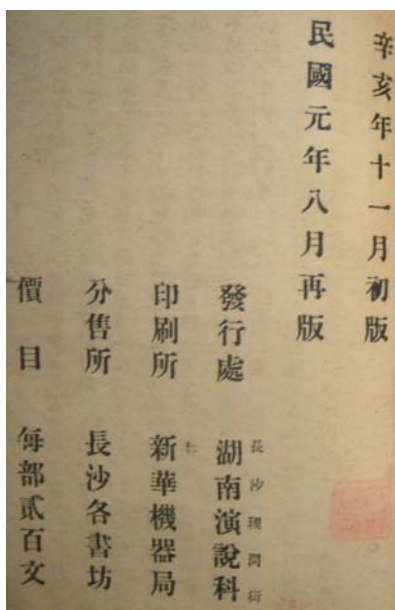 辛亥年十一月初版
民國元年八月再版
發行處 長沙理問街 湖南演說科
印刷所 新華機器局
分售所 長沙各書坊
價目 每部貳百文